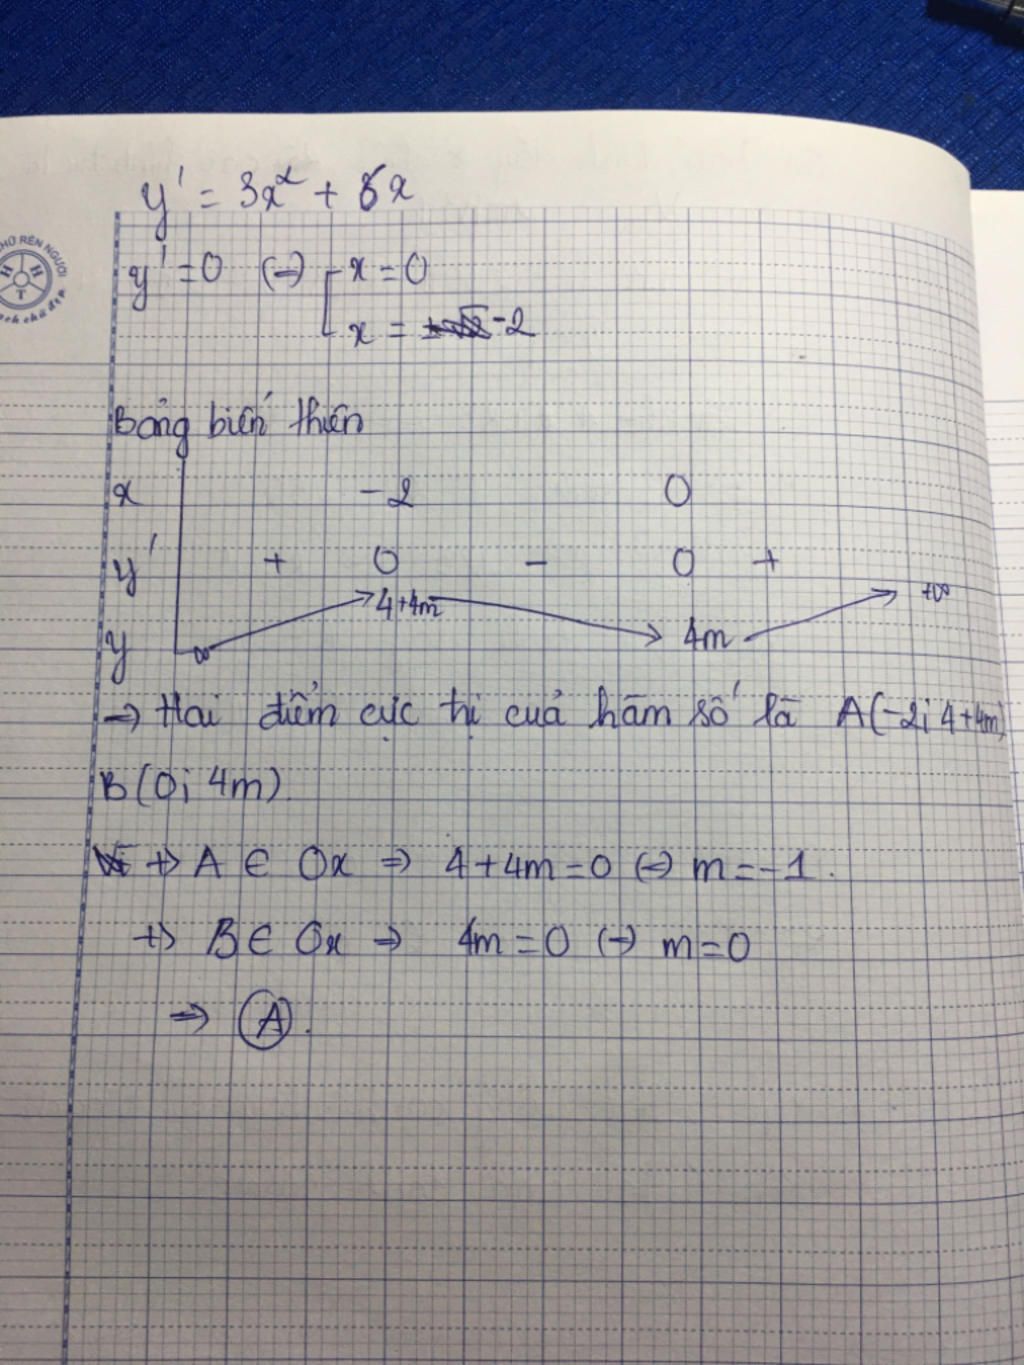 y' = 3x² + 6x
y' = 0 (→) [ x = 0
x = -2
Bảng biến thiên
x -2 0
y' + 0 - 0 +
4+4m +∞
y ∞ 4m
→ Hai điểm cực trị cuả hàm số là A(-2; 4+4m)
B(0; 4m).
+> A ∈ Ox => 4+4m=0 (→) m=-1.
+> B ∈ Ox → 4m=0 (→) m=0
=> A.
CHỮ RÈN NGƯỜI
H H T